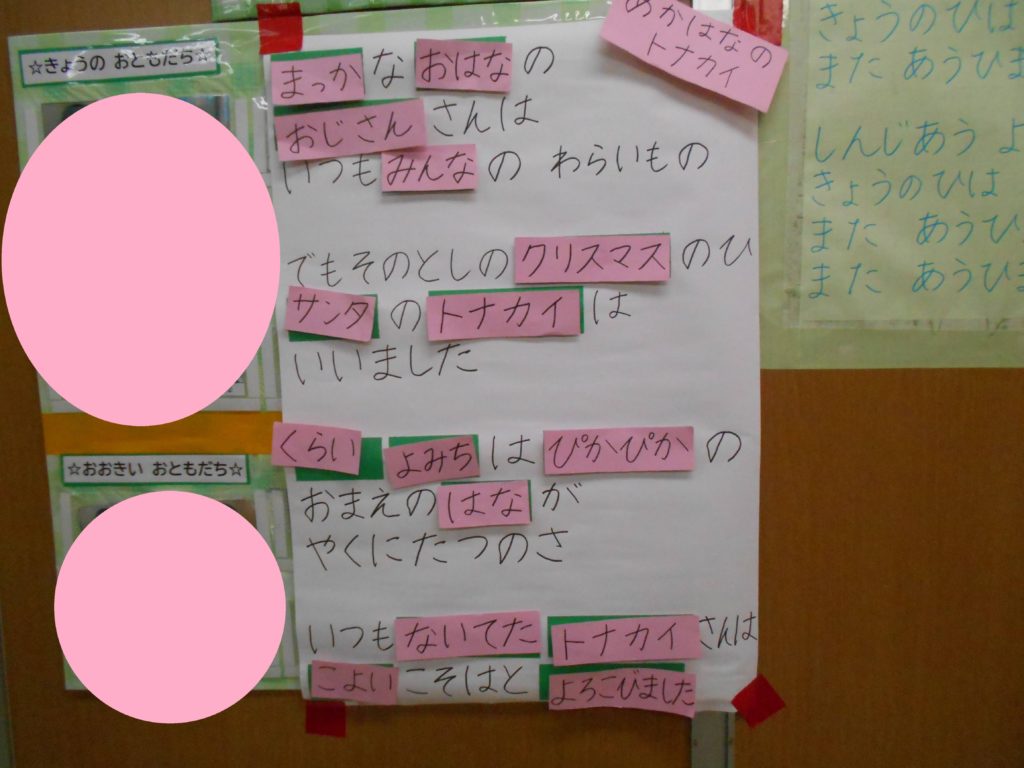 ☆きょうの おともだち☆
☆おおきい おともだち☆
めかはなの
トナカイ
まっかなおはなの
おじさんさんは
いつもみんなの わらいもの
でもそのとしのクリスマスのひ
サンタのトナカイは
いいました
くらいよみちはぴかぴかの
おまえのはなが
やくにたつのさ
いつもないてたトナカイさんは
こよいこそはとよろこびました
きょうのひは
また あうひま
しんじあう よ
きょうのひは
また あうひ
また あうひま